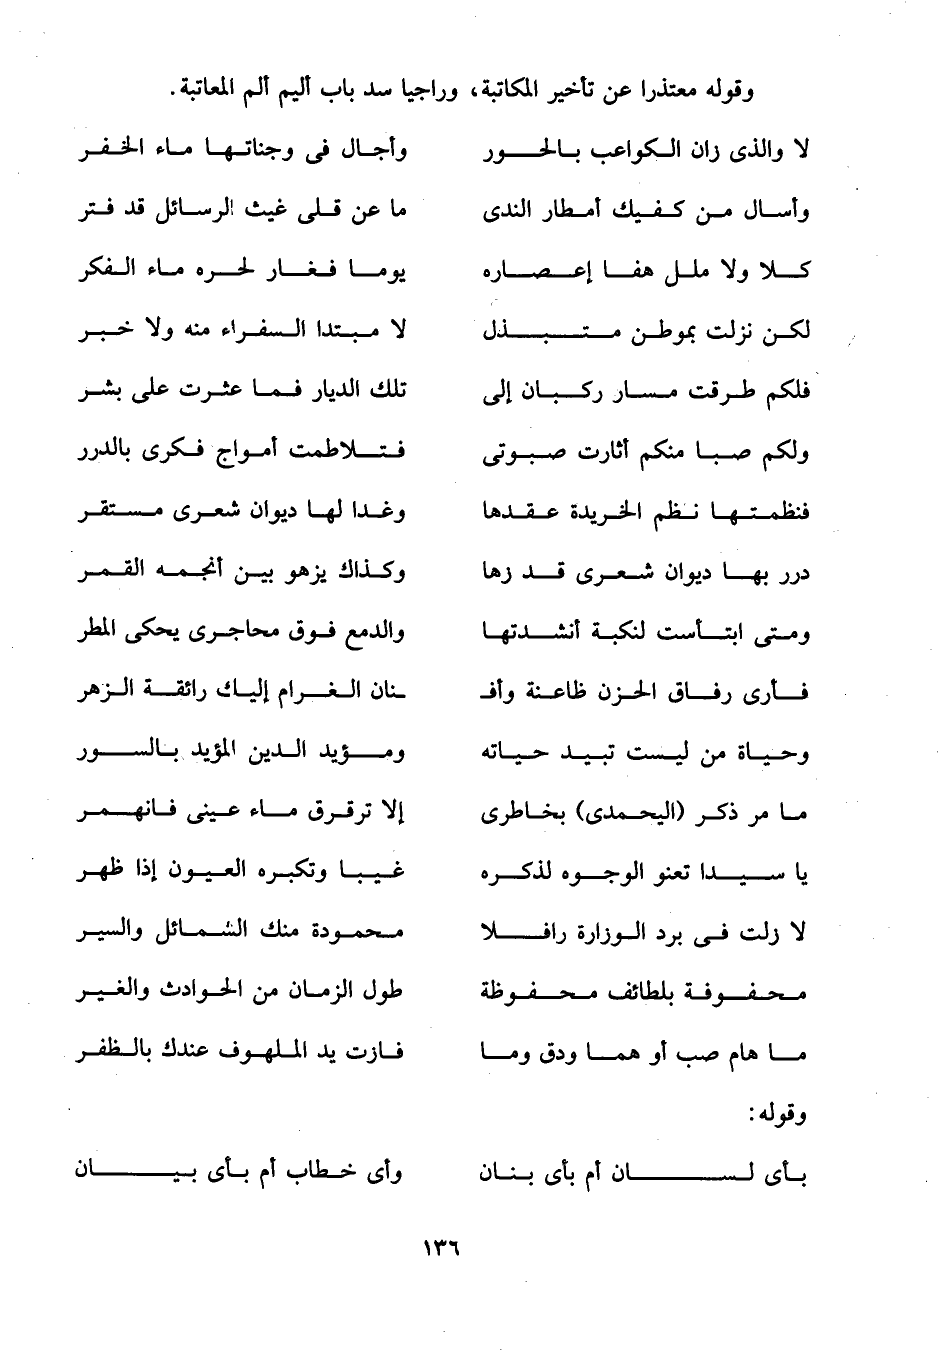 وقوله معتذرا عن تأخير المكاتبة، وراجيا سد باب أليم ألم المعاتبة.
لا والذى زان الكواعب بالحور وأجال فى وجناتها ماء الخفر
وأسال من كفيك أمطار الندى ما عن قلى غيث الرسائل قد فتر
كلا ولا ملل هفا إعصاره يوما فغار لحره ماء الفكر
لكن نزلت بموطن متبذل لا مبتدا السفراء منه ولا خبر
فلكم طرقت مسار ركبان إلى تلك الديار فما عثرت على بشر
ولكم صبا منكم أثارت صبوتى فتلاطمت أمواج فكرى بالدرر
فنظمتها نظم الخريدة عقدها وغدا لها ديوان شعرى مستقر
درر بها ديوان شعرى قد زها وكذاك يزهو بين أنجمه القمر
ومتى ابتأست لنكبة أنشدتها والدمع فوق محاجرى يحكى المطر
فأرى رفاق الحزن ظاعنة وأفـ ـنان الغرام إليك رائقة الزهر
وحياة من ليست تبيد حياته ومؤيد الدين المؤيد بالسور
ما مر ذكر (اليحمدى) بخاطرى إلا ترقرق ماء عينى فانهمر
يا سيدا تعنو الوجوه لذكره غيبا وتكبره العيون إذا ظهر
لا زلت فى برد الوزارة رافلا محمودة منك الشمائل والسير
محفوفة بلطائف محفوظة طول الزمان من الحوادث والغير
ما هام صب أو هما ودق وما فازت يد الملهوف عندك بالظفر
وقوله:
بأى لسان أم بأى بنان وأى خطاب أم بأى بيان
١٣٦